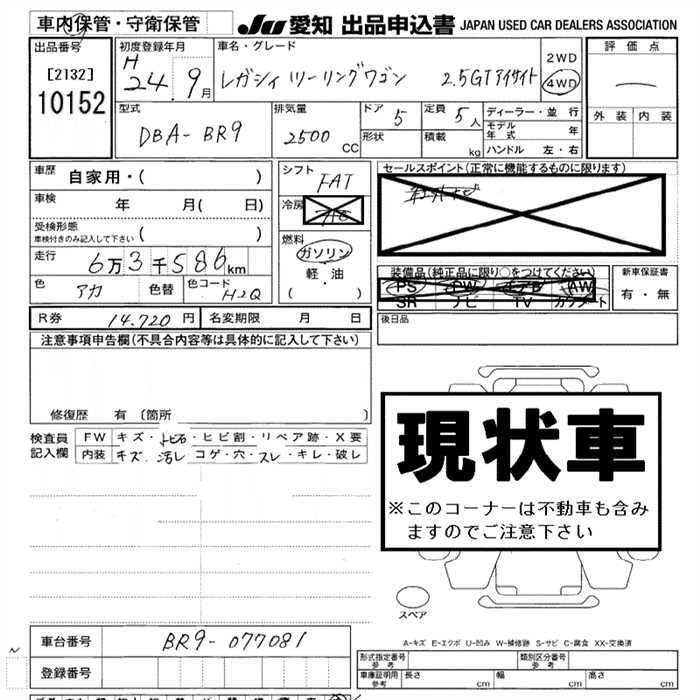 車内保管・守衛保管
JU 愛知 出品申込書 JAPAN USED CAR DEALERS ASSOCIATION
出品番号
[2132]
10152
初度登録年月
H
24. 9月
車名・グレード
レガシィ ツーリングワゴン 2.5GTアイサイト
2WD
4WD
評価点
外装 内装
型式
DBA-BR9
排気量
2500 CC
ドア 5
形状
定員 5人
積載 kg
ディーラー・並行
モデル年式 年
ハンドル 左・右
車歴 自家用・( )
車検 年 月( 日)
受検形態
車検付きのみ記入して下さい ( )
走行 6万3千586km
色 アカ 色替 色コード H2Q
シフト FAT
冷房
燃料
ガソリン
軽・油
( ・ )
セールスポイント(正常に機能するものに限ります)
装備品(純正品に限り○をつけてください)
PS PW エアB AW
SR ナビ TV カワシート
新車保証書
有・無
R券 14,720円 名変期限 月 日
後日品
注意事項申告欄(不具合内容等は具体的に記入して下さい)
修復歴 有〔箇所 〕
検査員
記入欄
FW キズ・トビ石・ヒビ割・リペア跡・X要
内装 キズ・汚レ・コゲ・穴・スレ・キレ・破レ
現状車
※このコーナーは不動車も含み
ますのでご注意下さい
スペア
A-キズ E-エクボ U-凹み W-補修跡 S-サビ C-腐食 XX-交換済
車台番号 BR9-077081
登録番号
形式指定番号
参考
類別区分番号
参考
車庫証明用
参考
長さ cm 幅 cm 高さ cm